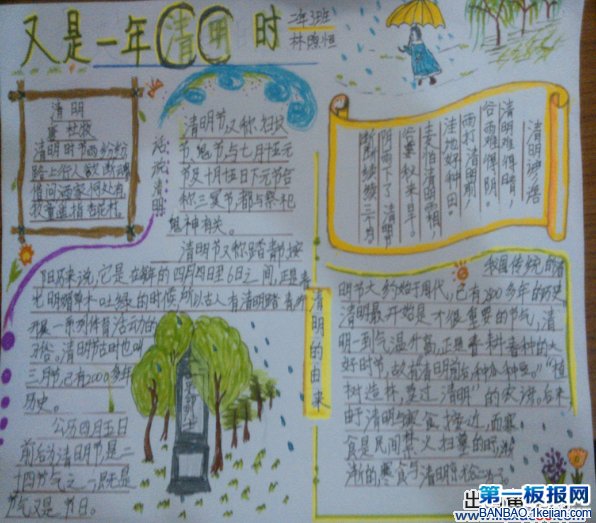 又是一年清明时
二年3班
清明
唐 杜牧
清明时节雨纷纷
路上行人欲断魂
借问酒家何处有
牧童遥指杏花村
话说清明
清明节又称扫坟
节、鬼节与七月十五元
节及十月十五日下元节合
称三冥节,都与祭祀
鬼神有关。
清明节又称踏青节,按
阳历来说,它是在每年的四月四日至6日之间,正是春
光明媚草木吐绿的时候,所以古人有清明踏青并
开展一系列体育活动的
习俗。清明节古时也叫
三月节,已有2000多年
历史。
公历四月五日
前后为清明节是二
十四节气之一,既是
节气又是节日。
清明谚语
清明难得晴,
谷雨难得阴。
雨打清明前,
洼地好种田。
麦怕清明霜
谷要秋来旱。
阴雨下了清明节
断断续续三个月
清明的由来
我国传统的清
明节大约始于周代,已有2500多年的历史。
清明最开始是一个很重要的节气,清
明一到气温升高,正是春耕春种的大
好时节,故有“清明前后,种瓜种豆。”“植
树造林,莫过清明”的农谚。后来
由于清明与寒食接近,而寒
食是民间禁火扫墓的日子,渐
渐的,寒食与清明合
第一板报网
BANBAO.1kejian.com